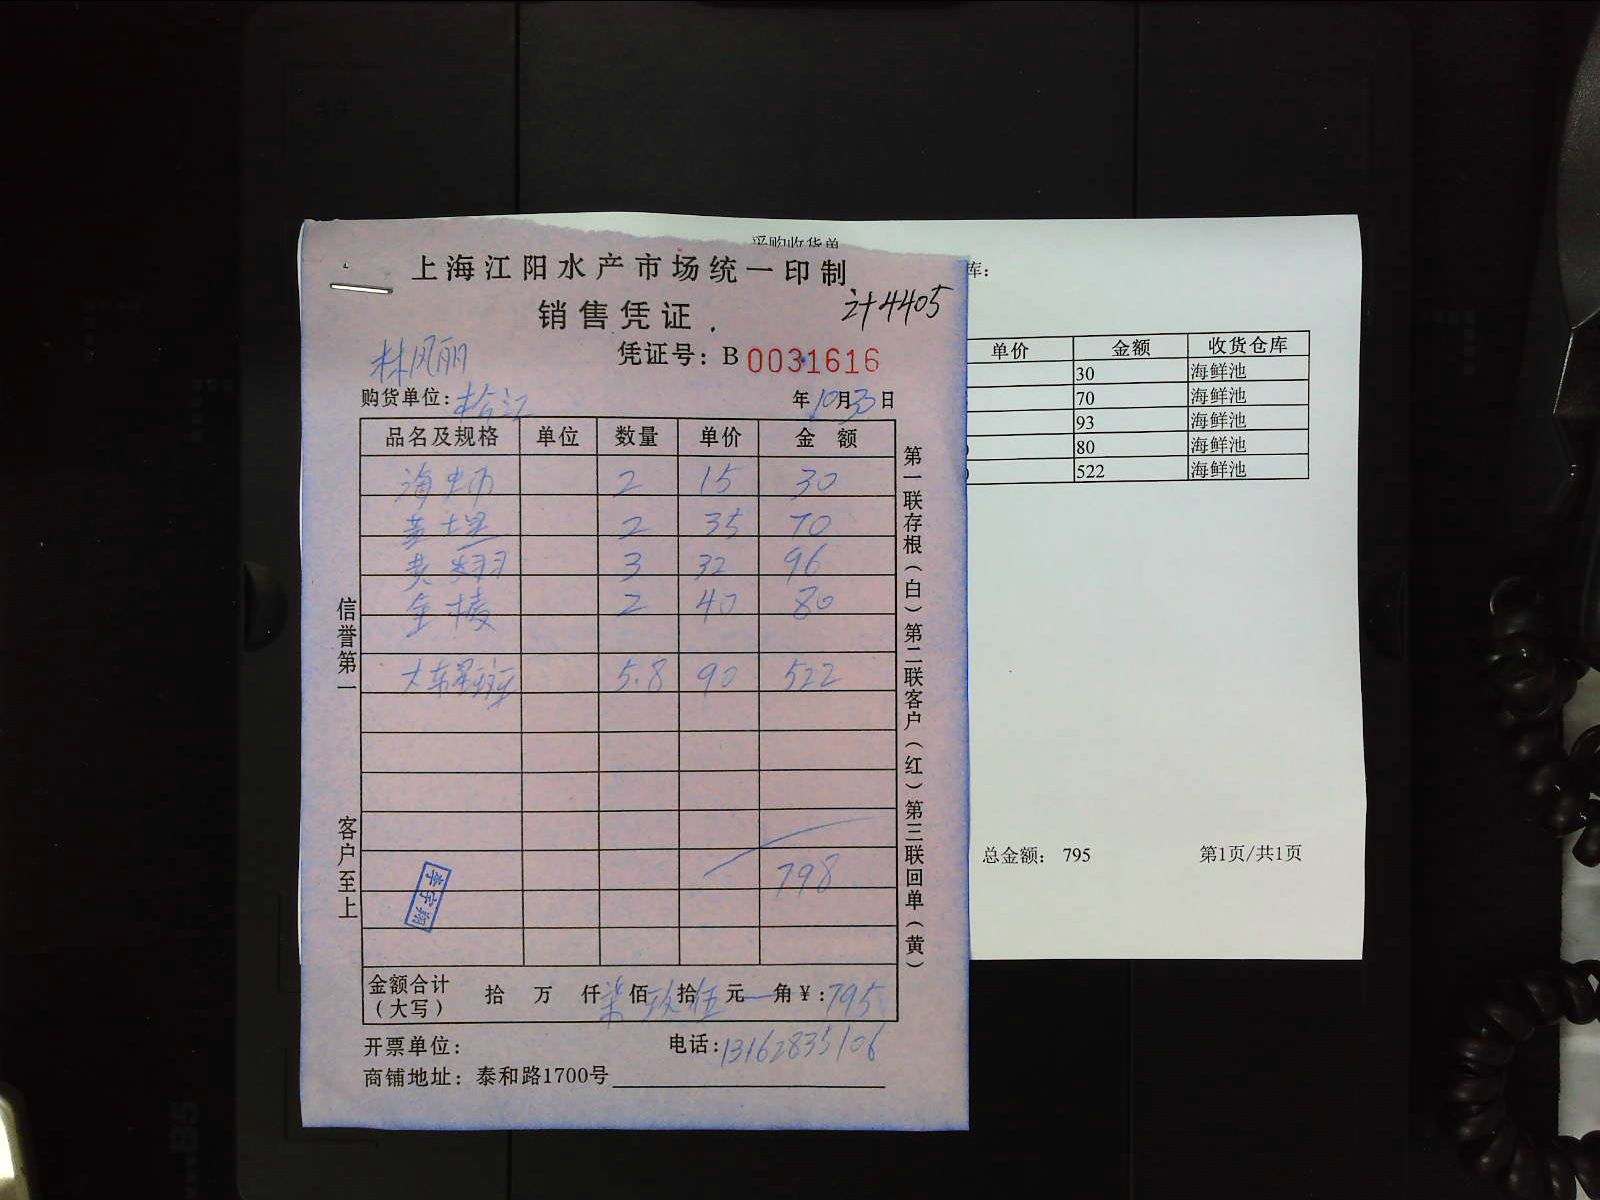 采购收货单
上海江阳水产市场统一印制
销售凭证
计4405
林凤丽
凭证号：B 0031616
购货单位：松江
年10月30日
品名及规格 单位 数量 单价 金额
海蛎 2 15 30
黄 2 35 70
黄翅 3 32 96
金棱 2 40 80
大东星斑 5.8 90 522
798
李宇翔
金额合计（大写） 拾 万 仟柒佰玖拾伍元 角￥：795
开票单位：
电话：13162835106
商铺地址：泰和路1700号
信誉第一
客户至上
第一联存根（白）第二联客户（红）第三联回单（黄）
库：
单价 金额 收货仓库
30 海鲜池
70 海鲜池
93 海鲜池
80 海鲜池
522 海鲜池
总金额： 795 第1页/共1页
A4
B5